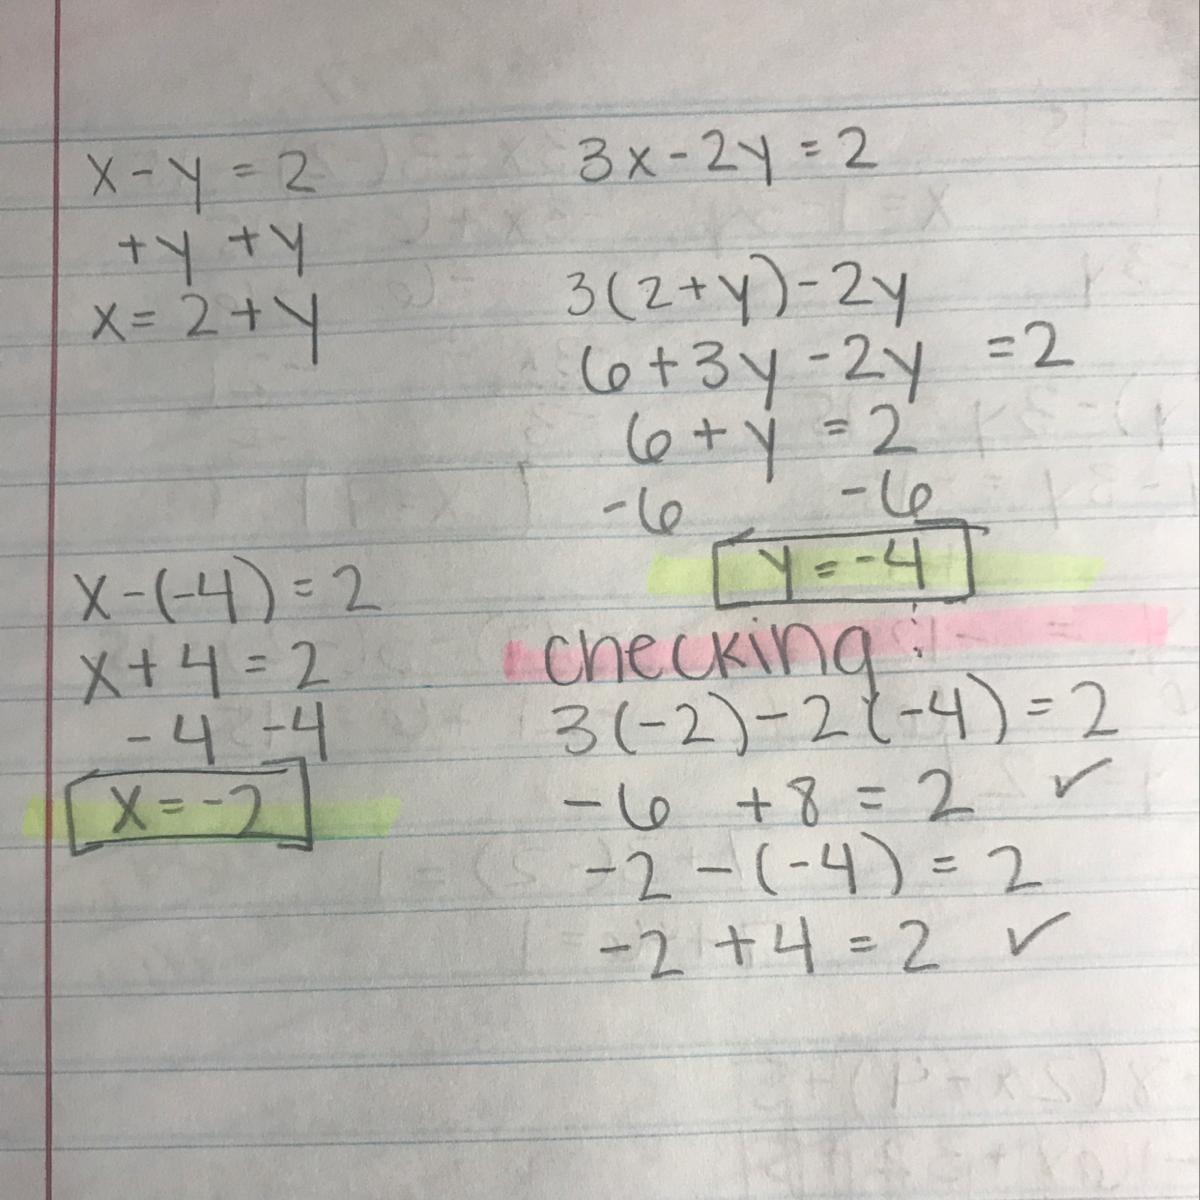 x - y = 2
+y +y
x = 2 + y
3x - 2y = 2
3(2+y) - 2y
6 + 3y - 2y = 2
6 + y = 2
-6 -6
y = -4
x - (-4) = 2
x + 4 = 2
-4 -4
x = -2
checking:
3(-2) - 2(-4) = 2
-6 +8 = 2 ✓
-2 - (-4) = 2
-2 + 4 = 2 ✓